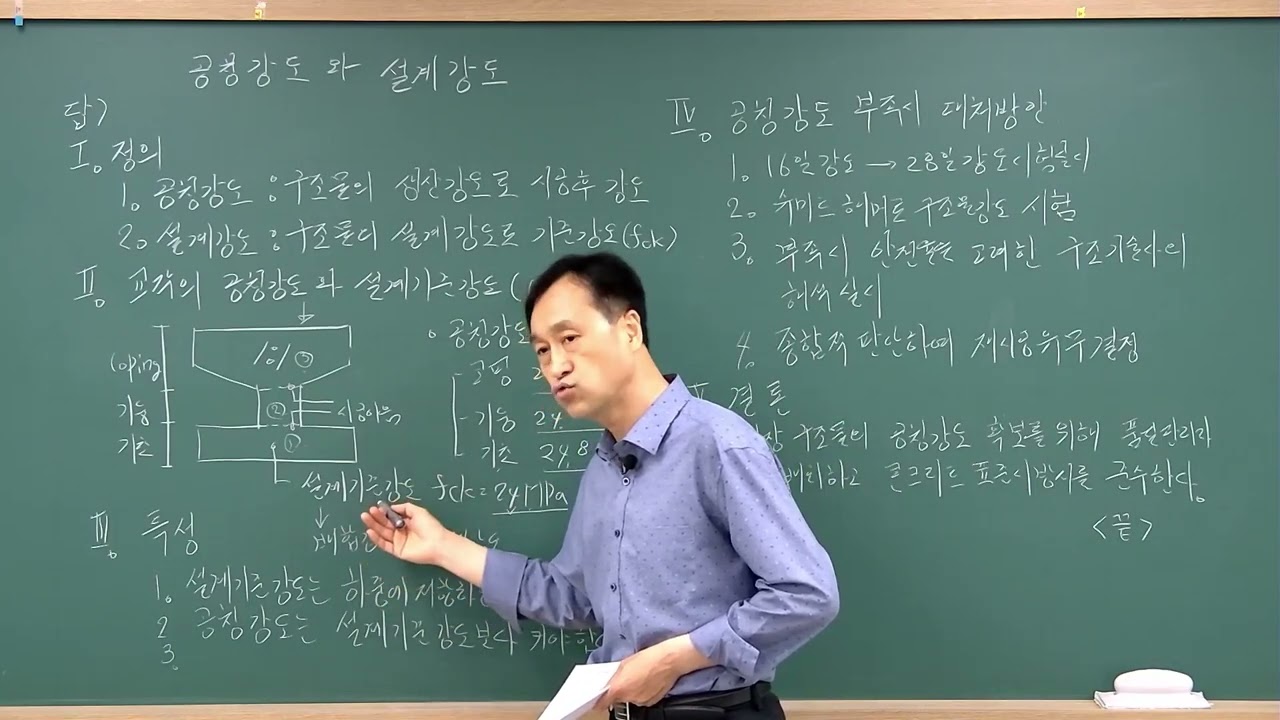 공칭강도 와 설계강도
답)
I. 정의
1. 공칭강도 : 구조물의 생산강도로 시공후 강도
2. 설계강도 : 구조물의 설계강도로 기준강도(fck)
II. 교각의 공칭강도와 설계기준강도
coping
기둥
기초
③
②
①
시공이음
설계기준강도 fck = 24MPa
공칭강도
- 코핑
- 기둥 24.
- 기초 24.8
III. 특성
1. 설계기준강도는 하중에 저항하는
2. 공칭강도는 설계기준강도보다 커야한
3.
IV. 공칭강도 부족시 대처방안
1. 16일강도 → 28일강도시험실시
2. 슈미트 해머로 구조물강도 시험
3. 부족시 안전율을 고려한 구조기술사의
해석 실시
4. 종합적 판단하여 재시공유무결정
결론
구조물의 공칭강도 확보를 위해 품질관리가
배려하고 콘크리트 표준시방서를 준수한다.
<끝>